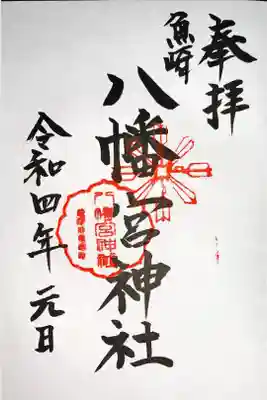 奉拝
魚崎
八幡宮神社
八幡宮神社
令和四年 元日